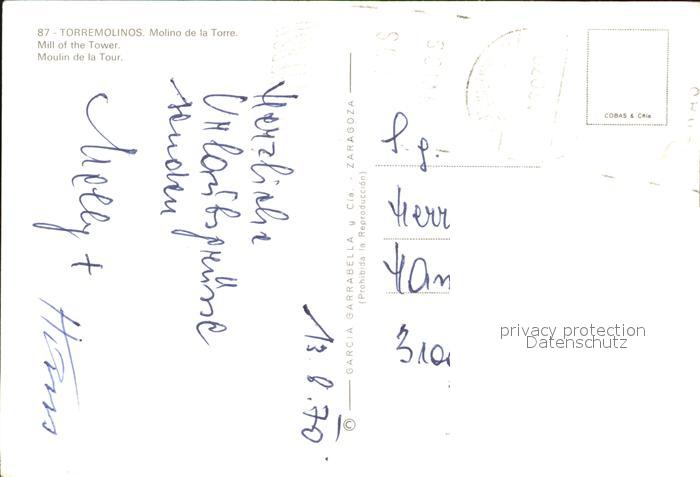 87 - TORREMOLINOS. Molino de la Torre.
Mill of the Tower.
Moulin de la Tour.
13.8.70
Herzliche
Urlaubsgrüsse
senden
Melly +
© GARCIA GARRABELLA y Cía. - ZARAGOZA
(Prohibida la Reproducción)
COBAS & Cía
S.g.
Herr
privacy protection
Datenschutz